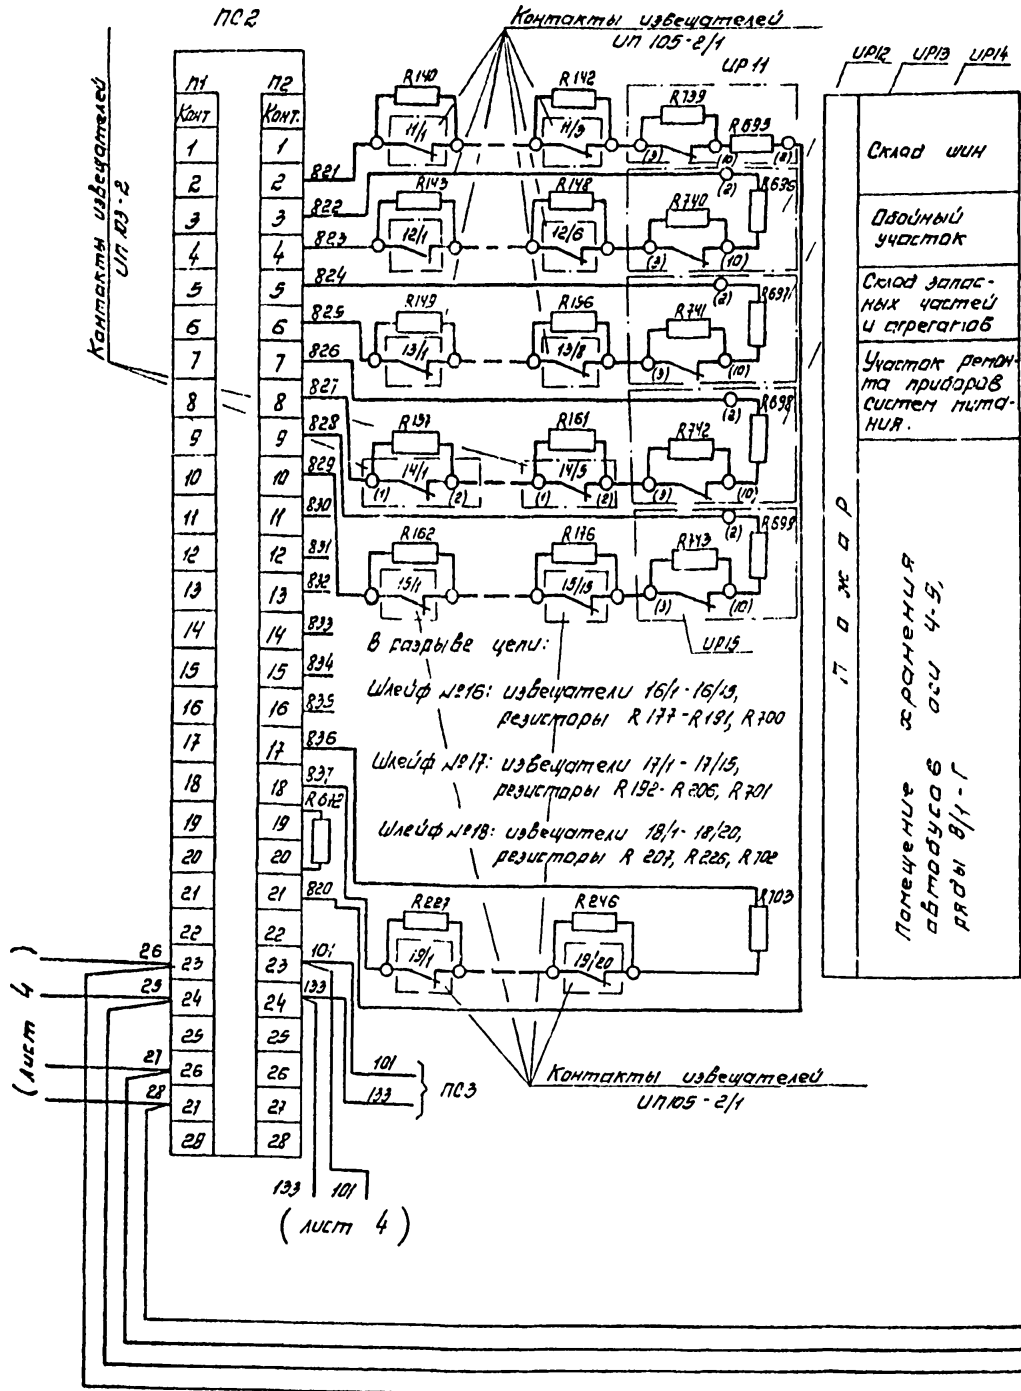 ПС2
Контакты извещателей
ИП 105-2/1
Контакты извещателей
ИП 103-2
П1
Конт
1
2
3
4
5
6
7
8
9
10
11
12
13
14
15
16
17
18
19
20
21
22
23
24
25
26
27
28
П2
Конт.
1
2
3
4
5
6
7
8
9
10
11
12
13
14
15
16
17
18
19
20
21
22
23
24
25
26
27
28
821
822
823
824
825
826
827
828
829
830
831
832
833
834
835
836
837
R672
820
101
133
R140
11/1
R142
11/3
UP11
R739
R695
(3)
(10)
(2)
R143
12/1
R148
12/6
R740
R696
(2)
(3)
(10)
R149
13/1
R156
13/8
R741
R697
(2)
(3)
(10)
R157
14/1
(1)
(2)
R161
14/5
(1)
(2)
R742
R698
(2)
(3)
(10)
R162
15/1
R176
15/15
R743
R699
(2)
(3)
(10)
UP15
В разрыве цепи:
Шлейф №16: извещатели 16/1-16/15,
резисторы R177-R191, R700
Шлейф №17: извещатели 17/1-17/15,
резисторы R192-R206, R701
Шлейф №18: извещатели 18/1-18/20,
резисторы R 207, R226, R702
R227
19/1
R246
19/20
R703
Контакты извещателей
ИП105-2/1
101
133
ПС3
133 101
(лист 4)
26
25
27
28
(лист 4)
UP12 UP13 UP14
Пожар
Склад шин
Обойный
участок
Склад запас-
ных частей
и агрегатов
Участок ремон-
та приборов
систем пита-
ния.
Помещение хранения
автобусов оси 4-5,
ряды В/1-Г